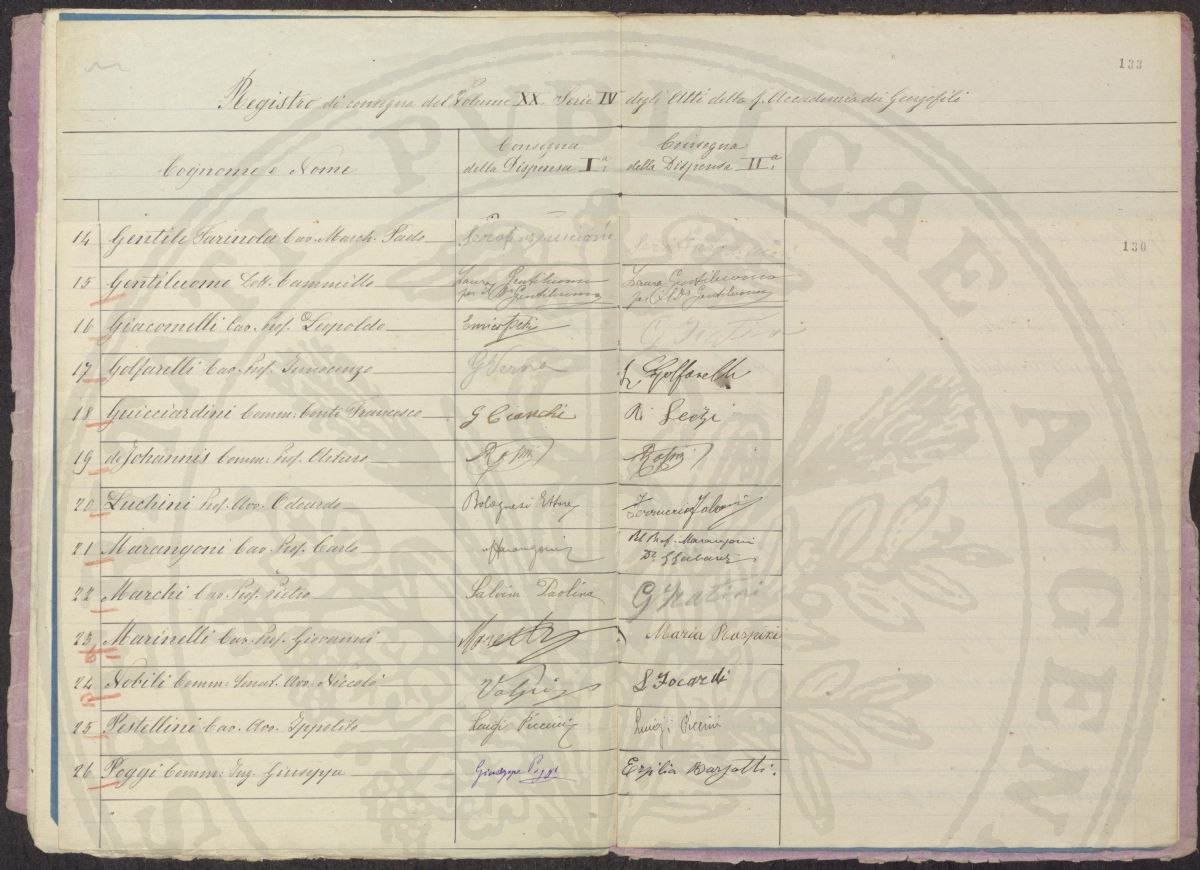 133
Registro di consegna del Volume XX Serie IV degli Atti della R. Accademia dei Georgofili
Cognome e Nome
Consegna della Dispensa Iª
Consegna della Dispensa IIª
130
14 Gentile Farinola Cav. March. Paolo
15 Gentiluomo Dott. Cammillo Laura Gentiluomo Laura Gentiluomo
per il Dr Gentiluomo per il Dr Gentiluomo
16 Giacomelli Cav. Prof. Leopoldo Enrico
17 Golfarelli Cav. Prof. Innocenzo G Verna Golfarelli
18 Guicciardini Comm: Conte Francesco G Ciaschi
19 de Johannis Comm: Prof. Arturo
20 Luchini Prof. Avv. Odoardo Bolognesi Ettore Ferruccio
21 Marangoni Cav. Prof. Carlo Marangoni Pel Prof. Marangoni
22 Marchi Cav. Prof. Pietro Salvini Paolina G Fratini
23 Marinelli Cav. Prof. Giovanni Moretti Maria Raspini
24 Nobili Comm: Senat. Avv. Niccolò Volpi L Focardi
25 Pestellini Cav. Avv. Ippolito Luigi Piccini Luigi Piccini
26 Poggi Comm: Ing. Giuseppe Giuseppe Poggi Ersilia Barsotti.